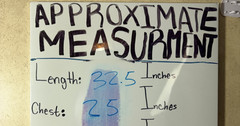 APPROXIMATE
MEASURMENT
Length: 32.5 Inches
Chest: 25 Inches